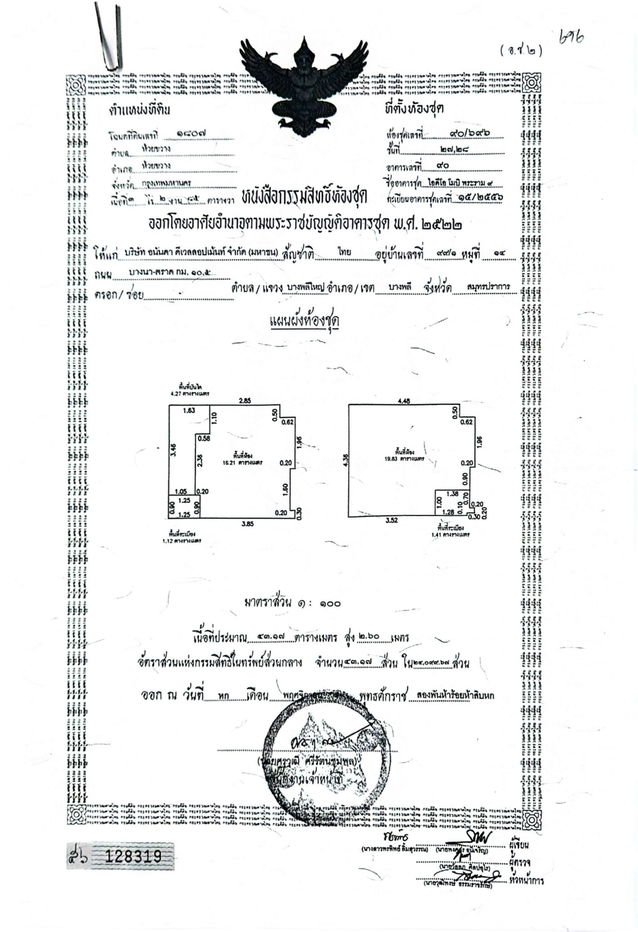 ๖๑๖
(อ.ช ๒)
ตำแหน่งที่ดิน
ที่ตั้งห้องชุด
โฉนดที่ดินเลขที่ ๑๘๐๗
ห้องชุดเลขที่ ๙๐/๖๙๖
ตำบล ห้วยขวาง
ชั้นที่ ๒๗,๒๘
อำเภอ ห้วยขวาง
อาคารเลขที่ ๙๐
จังหวัด กรุงเทพมหานคร
ชื่ออาคารชุด ไอดีโอ โมบิ พระราม ๙
เนื้อที่ ๓ ไร่ ๒ งาน ๘๕ ตารางวา
ทะเบียนอาคารชุดเลขที่ ๑๕/๒๕๕๖
หนังสือกรรมสิทธิ์ห้องชุด
ออกโดยอาศัยอำนาจตามพระราชบัญญัติอาคารชุด พ.ศ. ๒๕๒๒
ให้แก่ บริษัท อนันดา ดีเวลลอปเม้นท์ จำกัด (มหาชน) สัญชาติ ไทย อยู่บ้านเลขที่ ๙๙/๑ หมู่ที่ ๑๔
ถนน บางนา-ตราด กม. ๑๐.๕
ตรอก/ซอย - ตำบล/แขวง บางพลีใหญ่ อำเภอ/เขต บางพลี จังหวัด สมุทรปราการ
แผนผังห้องชุด
พื้นที่บันได
4.27 ตารางเมตร
1.63
2.85
0.50
0.62
1.10
0.58
3.46
2.36
1.95
พื้นที่ห้อง
16.21 ตารางเมตร
0.20
1.50
1.05
0.20
1.25
0.90
0.90
1.25
3.85
0.20
0.30
พื้นที่ระเบียง
1.12 ตารางเมตร
4.48
0.50
0.62
1.95
4.36
พื้นที่ห้อง
19.83 ตารางเมตร
0.20
0.90
1.38
1.00
0.70
0.10
0.20
0.20
3.52
1.28
0.30
พื้นที่ระเบียง
1.41 ตารางเมตร
มาตราส่วน ๑ : ๑๐๐
เนื้อที่ประมาณ ๔๓.๑๗ ตารางเมตร สูง ๒.๖๐ เมตร
อัตราส่วนแห่งกรรมสิทธิ์ในทรัพย์ส่วนกลาง จำนวน ๔๓.๑๗ ส่วน ใน ๒๔,๐๙๙.๖๗ ส่วน
ออก ณ วันที่ หก เดือน พฤศจิกายน พุทธศักราช สองพันห้าร้อยห้าสิบหก
พนักงานเจ้าหน้าที่
ผู้เขียน
ผู้ตรวจ
หัวหน้าการ
128319